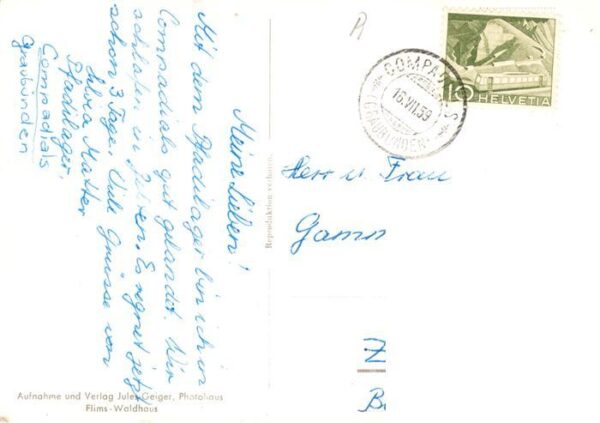 Meine Lieben!
Mit dem Pfadilager bin ich in
Compadials gut gelandet. Wir
schlafen in Zelten. Es regnet jetzt
schon 3 Tage. Viele Grüsse von
Silvia Matter
Pfadilager,
Compadials
Graubünden
Aufnahme und Verlag Jules Geiger, Photohaus
Flims-Waldhaus
Reproduktion verboten.
A
16.VII.59
(GRAUBÜNDEN)
10 HELVETIA
Herr u. Frau
Gamm
Z
B